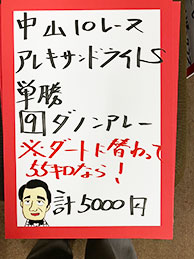 中山10レース
アレキサンドライトS
単勝
⑨ダノンアレー
※ダートに替わって
55キロなら!
計5000円